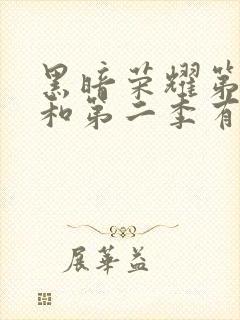 黑暗荣耀第
和第二季有
展华益